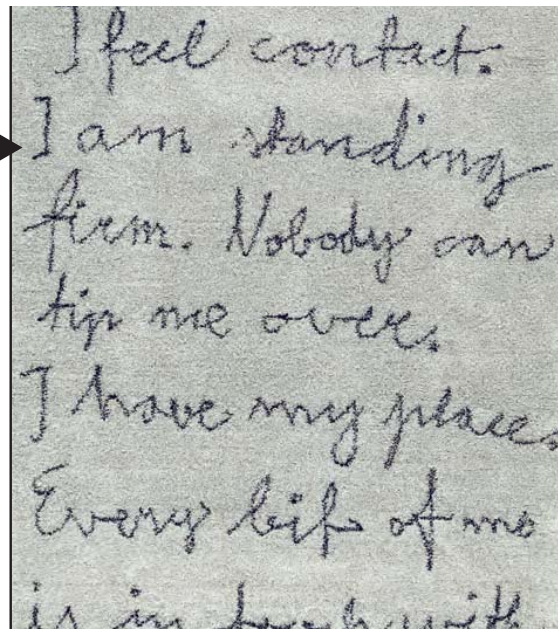 I feel contact.
I am standing
firm. Nobody can
tip me over.
I have my place.
Every bit of me
is in touch with